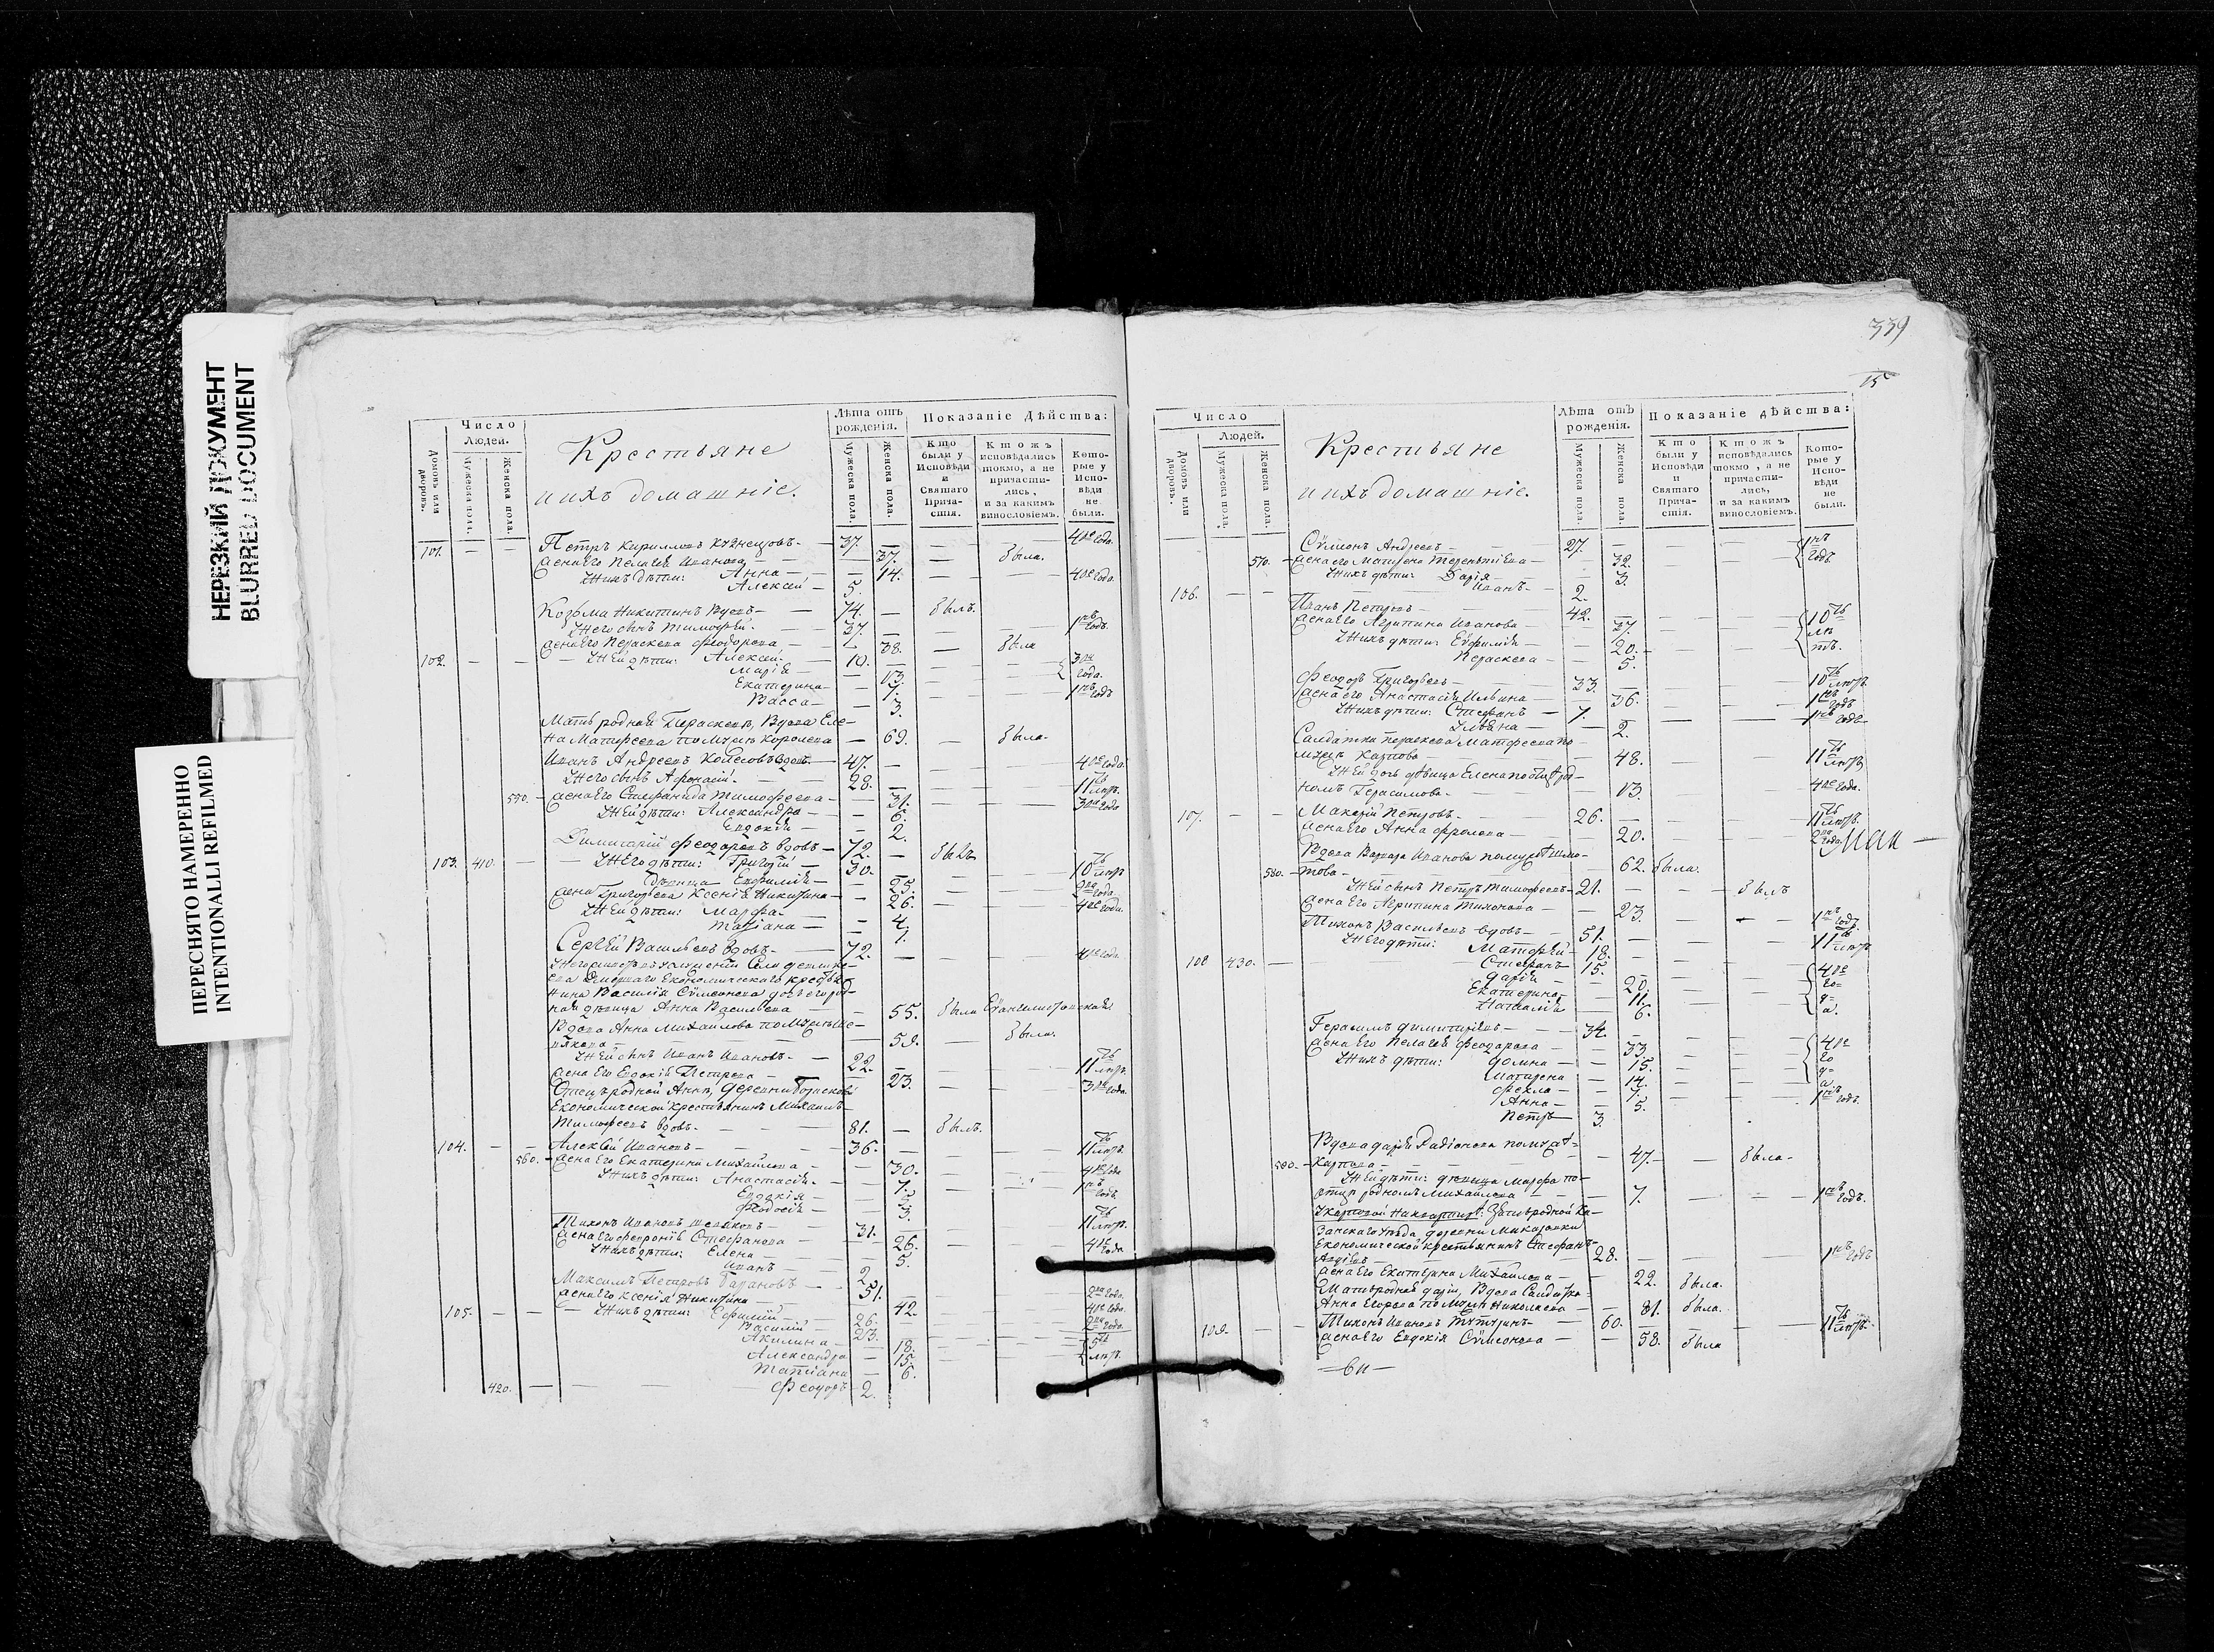 НЕРЕЗКИЙ ДОКУМЕНТ
BLURRED DOCUMENT
ПЕРЕСНЯТО НАМЕРЕННО
INTENTIONALLI REFILMED
Число
Людей.
Домовъ или дворовъ.
Мужеска пола.
Женска пола.
Крестьяне
и ихъ домашніе.
Лѣта отъ рожденія.
Мужеска пола.
Женска пола.
Показаніе дѣйства:
Кто были у Исповѣди и Святаго Причастія.
Ктожъ исповѣдались токмо, а не причастились, и за какимъ винословіемъ.
Которые у Исповѣди не были.
101. — — Петръ Кирилловъ Кузнецовъ — 37. — — — 4 года.
жена Его Пелагея Иванова — 37. — была.
У нихъ дѣти: Анна — 14. — — 4 года.
Алексей — 5.
Козьма Никитинъ Вдовъ — 74. — былъ.
У него сынъ Тимофей — 37. — — 1 годъ.
жена Его Параскева Феодорова — 38. — была
102. — — У ней дѣти: Алексей — 10. — 3 года.
Марія — 13.
Екатерина — 7. — 1 годъ
Васса — 3.
Мать родная Параскевы, Вдова Еле-
на Матфеева по мужѣ Королева — 69. — была.
Иванъ Андреевъ вдовъ — 47. — 4 года.
У него сынъ Афонасій — 28. — 11 лѣтъ.
550. — жена Его Степанида Тимофеева — 31. — 3 года
У ней дѣти: Александра — 6.
Евдокія — 2.
Димитрій Феодоровъ вдовъ — 72. — былъ
103. 410. — У Него дѣти: Григорій — 30. — 10 лѣтъ
дѣвица Евфимія — 25. — 2 года.
жена Григорьева Ксенія Никитина — 26. — 4 года.
У Ней дѣти: Марфа — 4.
Татіана — 1.
Сергѣй Васильевъ вдовъ — 72. — 4 года
Економическаго крестья-
нина Василія Сѵмеонова дочь его род-
ная дѣвица Анна Васильева — 55. была
Вдова Анна Михайлова по мужѣ Ше-
лякова — 59. — была.
У Ней сынъ Иванъ Ивановъ — 22. — 11 лѣтъ.
жена Его Евдокія Петрова — 23. — 3 года.
Отецъ родной Анны, деревни
Економической крестьянинъ Михаилъ
Тимофеевъ вдовъ — 81. — былъ.
104. — — Алексѣй Ивановъ — 36. — 11 лѣтъ.
560. — жена Его Екатерина Михайлова — 30. — 4 года
У Нихъ дѣти: Анастасія — 7. — 1 годъ.
Евдокія — 5.
Феодосія — 3.
Тихонъ Ивановъ Шеляковъ — 31. — 11 лѣтъ.
жена Его Февронія Стефанова — 26. — 4 года
У Нихъ дѣти: Елена — 5.
Иванъ — 2.
Максимъ Петровъ Барановъ — 51. — 2 года.
жена Его Ксенія Никитина — 42. — 4 года.
105. — — У Нихъ дѣти: Ефимій — 26. — 2 года.
Василій — 23.
Акилина — 18. — 5 лѣтъ.
Александра — 15.
Татіана — 6.
420. — — Феодоръ — 2.
339
15
Число
Людей.
Домовъ или дворовъ.
Мужеска пола.
Женска пола.
Крестьяне
и ихъ домашніе.
Лѣта отъ рожденія.
Мужеска пола.
Женска пола.
Показаніе дѣйства:
Кто были у Исповѣди и Святаго Причастія.
Ктожъ исповѣдались токмо, а не причастились, и за какимъ винословіемъ.
Которые у Исповѣди не были.
Сѵмеонъ Андреевъ — 27. — 1 годъ.
570. — жена его Матрена Терентіева — 32.
У нихъ дѣти: Дарія — 3.
Иванъ — 2.
106. — — Иванъ Петровъ — 42. — 10 лѣтъ.
жена Его Агрипина Иванова — 37.
У Нихъ дѣти: Евфимія — 20.
Параскева — 5.
Феодоръ Григорьевъ — 33. — 10 лѣтъ.
жена его Анастасія Ильина — 36. — 1 годъ
У Нихъ дѣти: Стефанъ — 7. — 1 годъ
Ульяна — 2.
Салдатка Параскева Матфеева по
мужѣ Карпова — 48. — 11 лѣтъ
У Ней дочь дѣвица Елена по отцѣ род-
номъ Герасимова — 13. — 4 года.
107. — — Макарій Петровъ — 26. — 11 лѣтъ.
жена Его Анна Фролова — 20. — 2 года
Маи —
Вдова Варвара Иванова по мужѣ
580. — 62. была.
У Ней сынъ Петръ Тимофеевъ — 21. — былъ
жена Его Агрипина Тихонова — 23. — 1 годъ
Тихонъ Васильевъ вдовъ — 51. — 11 лѣтъ
У Него дѣти: Матфей — 18.
108 430. — Стефанъ — 15. — 4 года.
Дарія — 20.
Екатерина — 11.
Наталія — 6.
Герасимъ Димитріевъ — 34.
жена Его Пелагея Феодорова — 33. — 4 года
У Нихъ дѣти: Домна — 15.
Матрена — 14.
Фекла — 7.
Анна — 5. — 1 годъ.
Петръ — 3.
Вдова Дарія Радіонова по мужѣ
590. — Карпова — 47. — была
У Ней дѣти: дѣвица Марфа по
отцѣ родномъ Михайлова — 7. — 1 годъ.
Економической крестьянинъ Стефанъ
28. — 1 годъ
жена Его Екатерина Михайлова — 22. была.
Мать родная Даріи, Вдова Салдатка
Анна Егорова по мужѣ Николаева — 81. была.
109. — — Тихонъ Ивановъ — 60. — 11 лѣтъ.
жена Его Евдокія Сѵмеонова — 58. была